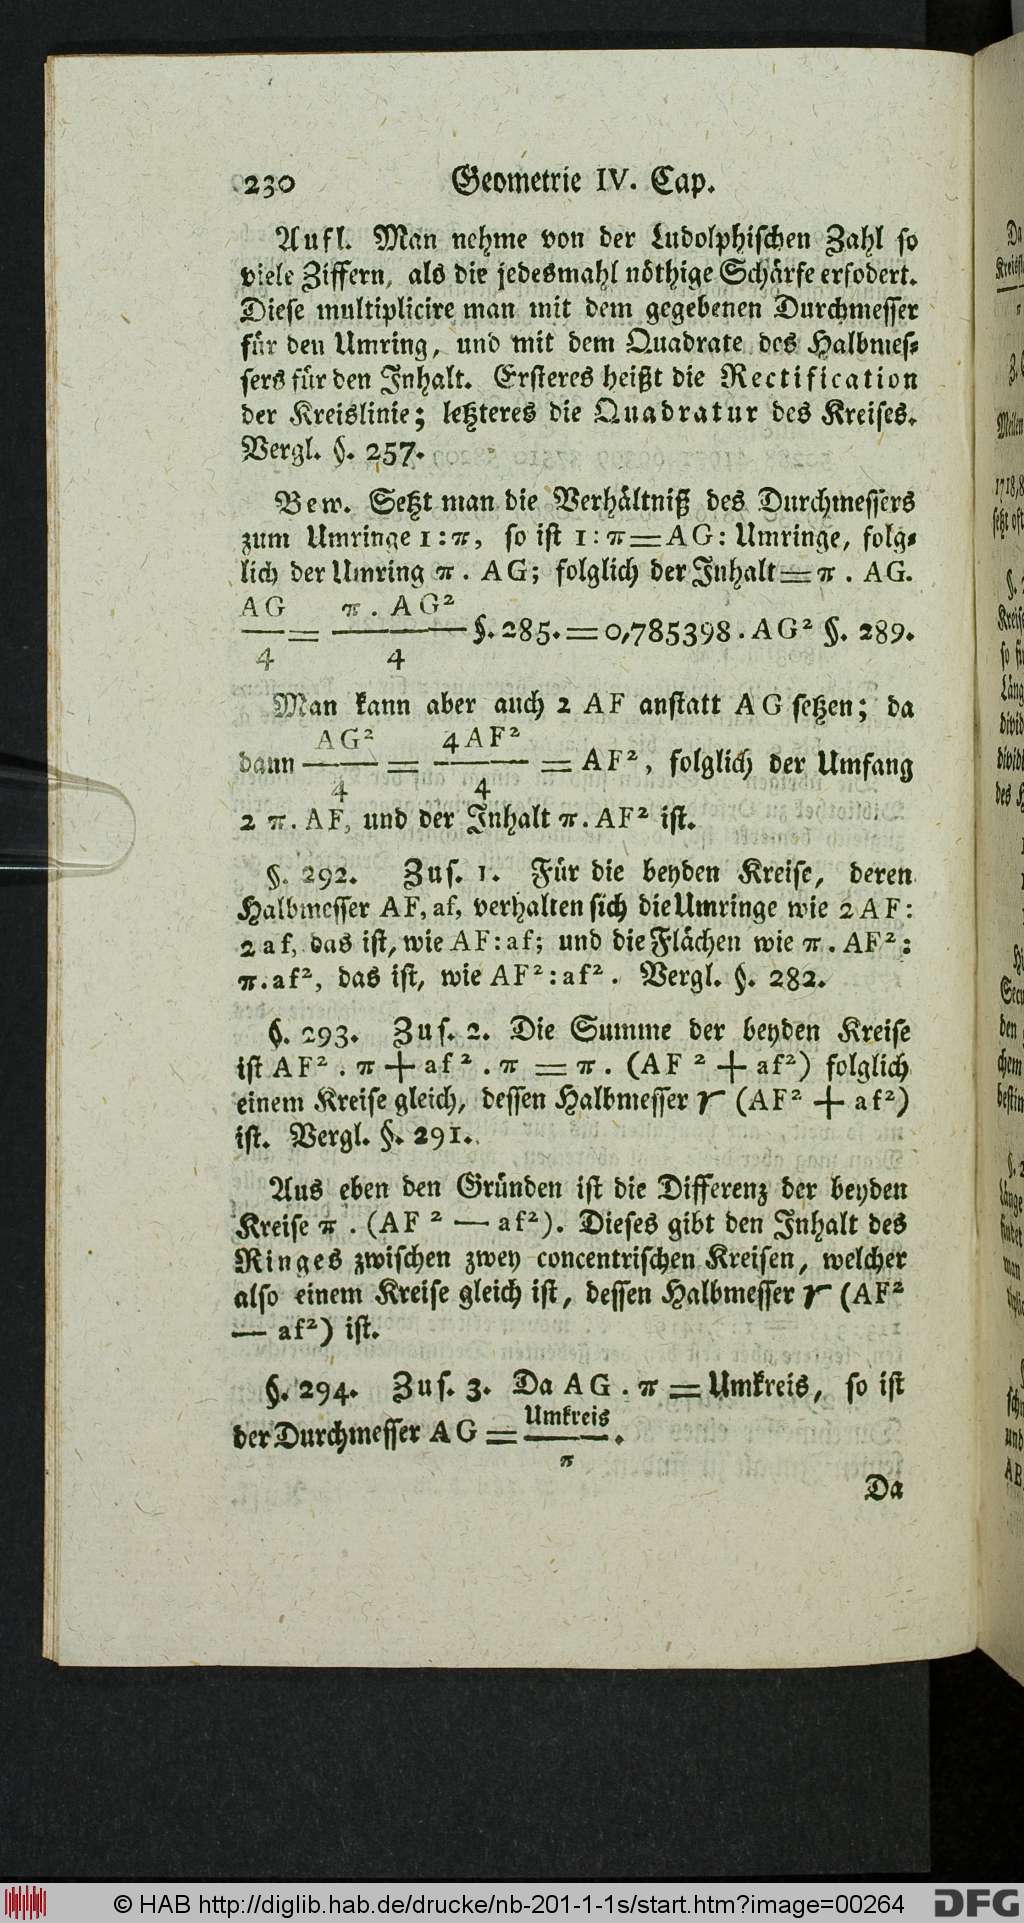 230 Geometrie IV. Cap.
Aufl. Man nehme von der Ludolphischen Zahl so
viele Ziffern, als die jedesmahl nöthige Schärfe erfodert.
Diese multiplicire man mit dem gegebenen Durchmesser
für den Umring, und mit dem Quadrate des Halbmes-
sers für den Inhalt. Ersteres heißt die Rectification
der Kreislinie; letzteres die Quadratur des Kreises.
Vergl. §. 257.
Bew. Setzt man die Verhältniß des Durchmessers
zum Umringe 1:π, so ist 1:π=AG: Umringe, folg-
lich der Umring π. AG; folglich der Inhalt=π. AG.
AG/4 = π. AG²/4 §. 285. = 0,785398. AG² §. 289.
Man kann aber auch 2 AF anstatt AG setzen; da
dann AG²/4 = 4AF²/4 = AF², folglich der Umfang
2 π. AF, und der Inhalt π. AF² ist.
§. 292. Zus. 1. Für die beyden Kreise, deren
Halbmesser AF, af, verhalten sich die Umringe wie 2AF:
2af, das ist, wie AF:af; und die Flächen wie π. AF²:
π.af², das ist, wie AF²:af². Vergl. §. 282.
§. 293. Zus. 2. Die Summe der beyden Kreise
ist AF². π + af². π = π. (AF² + af²) folglich
einem Kreise gleich, dessen Halbmesser r (AF² + af²)
ist. Vergl. §. 291.
Aus eben den Gründen ist die Differenz der beyden
Kreise π. (AF² — af²). Dieses gibt den Inhalt des
Ringes zwischen zwey concentrischen Kreisen, welcher
also einem Kreise gleich ist, dessen Halbmesser r (AF²
— af²) ist.
§. 294. Zus. 3. Da AG. π = Umkreis, so ist
der Durchmesser AG = Umkreis/π.
Da
© HAB http://diglib.hab.de/drucke/nb-201-1-1s/start.htm?image=00264
DFG